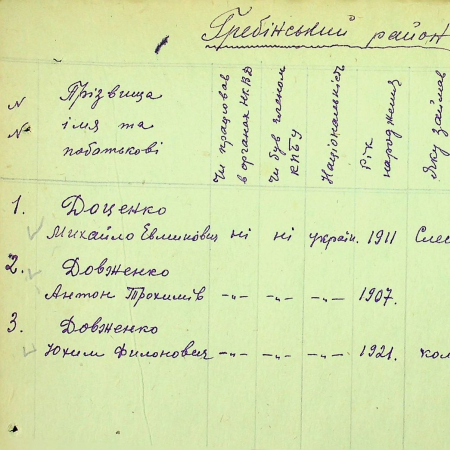 Гребінський район
N
№
Прізвища
імя та
побатькові
Чи працював
в органах НКВД
Чи був членом
КПбУ
Національність
Рік
народження
Яку займав
1. Доценко
Михайло Евминович ні ні україн. 1911 Слес
2. Довженко
Антон Трохимів -"- -"- -"- 1907.
3. Довженко
Юхим Филонович -"- -"- -"- 1921. кол